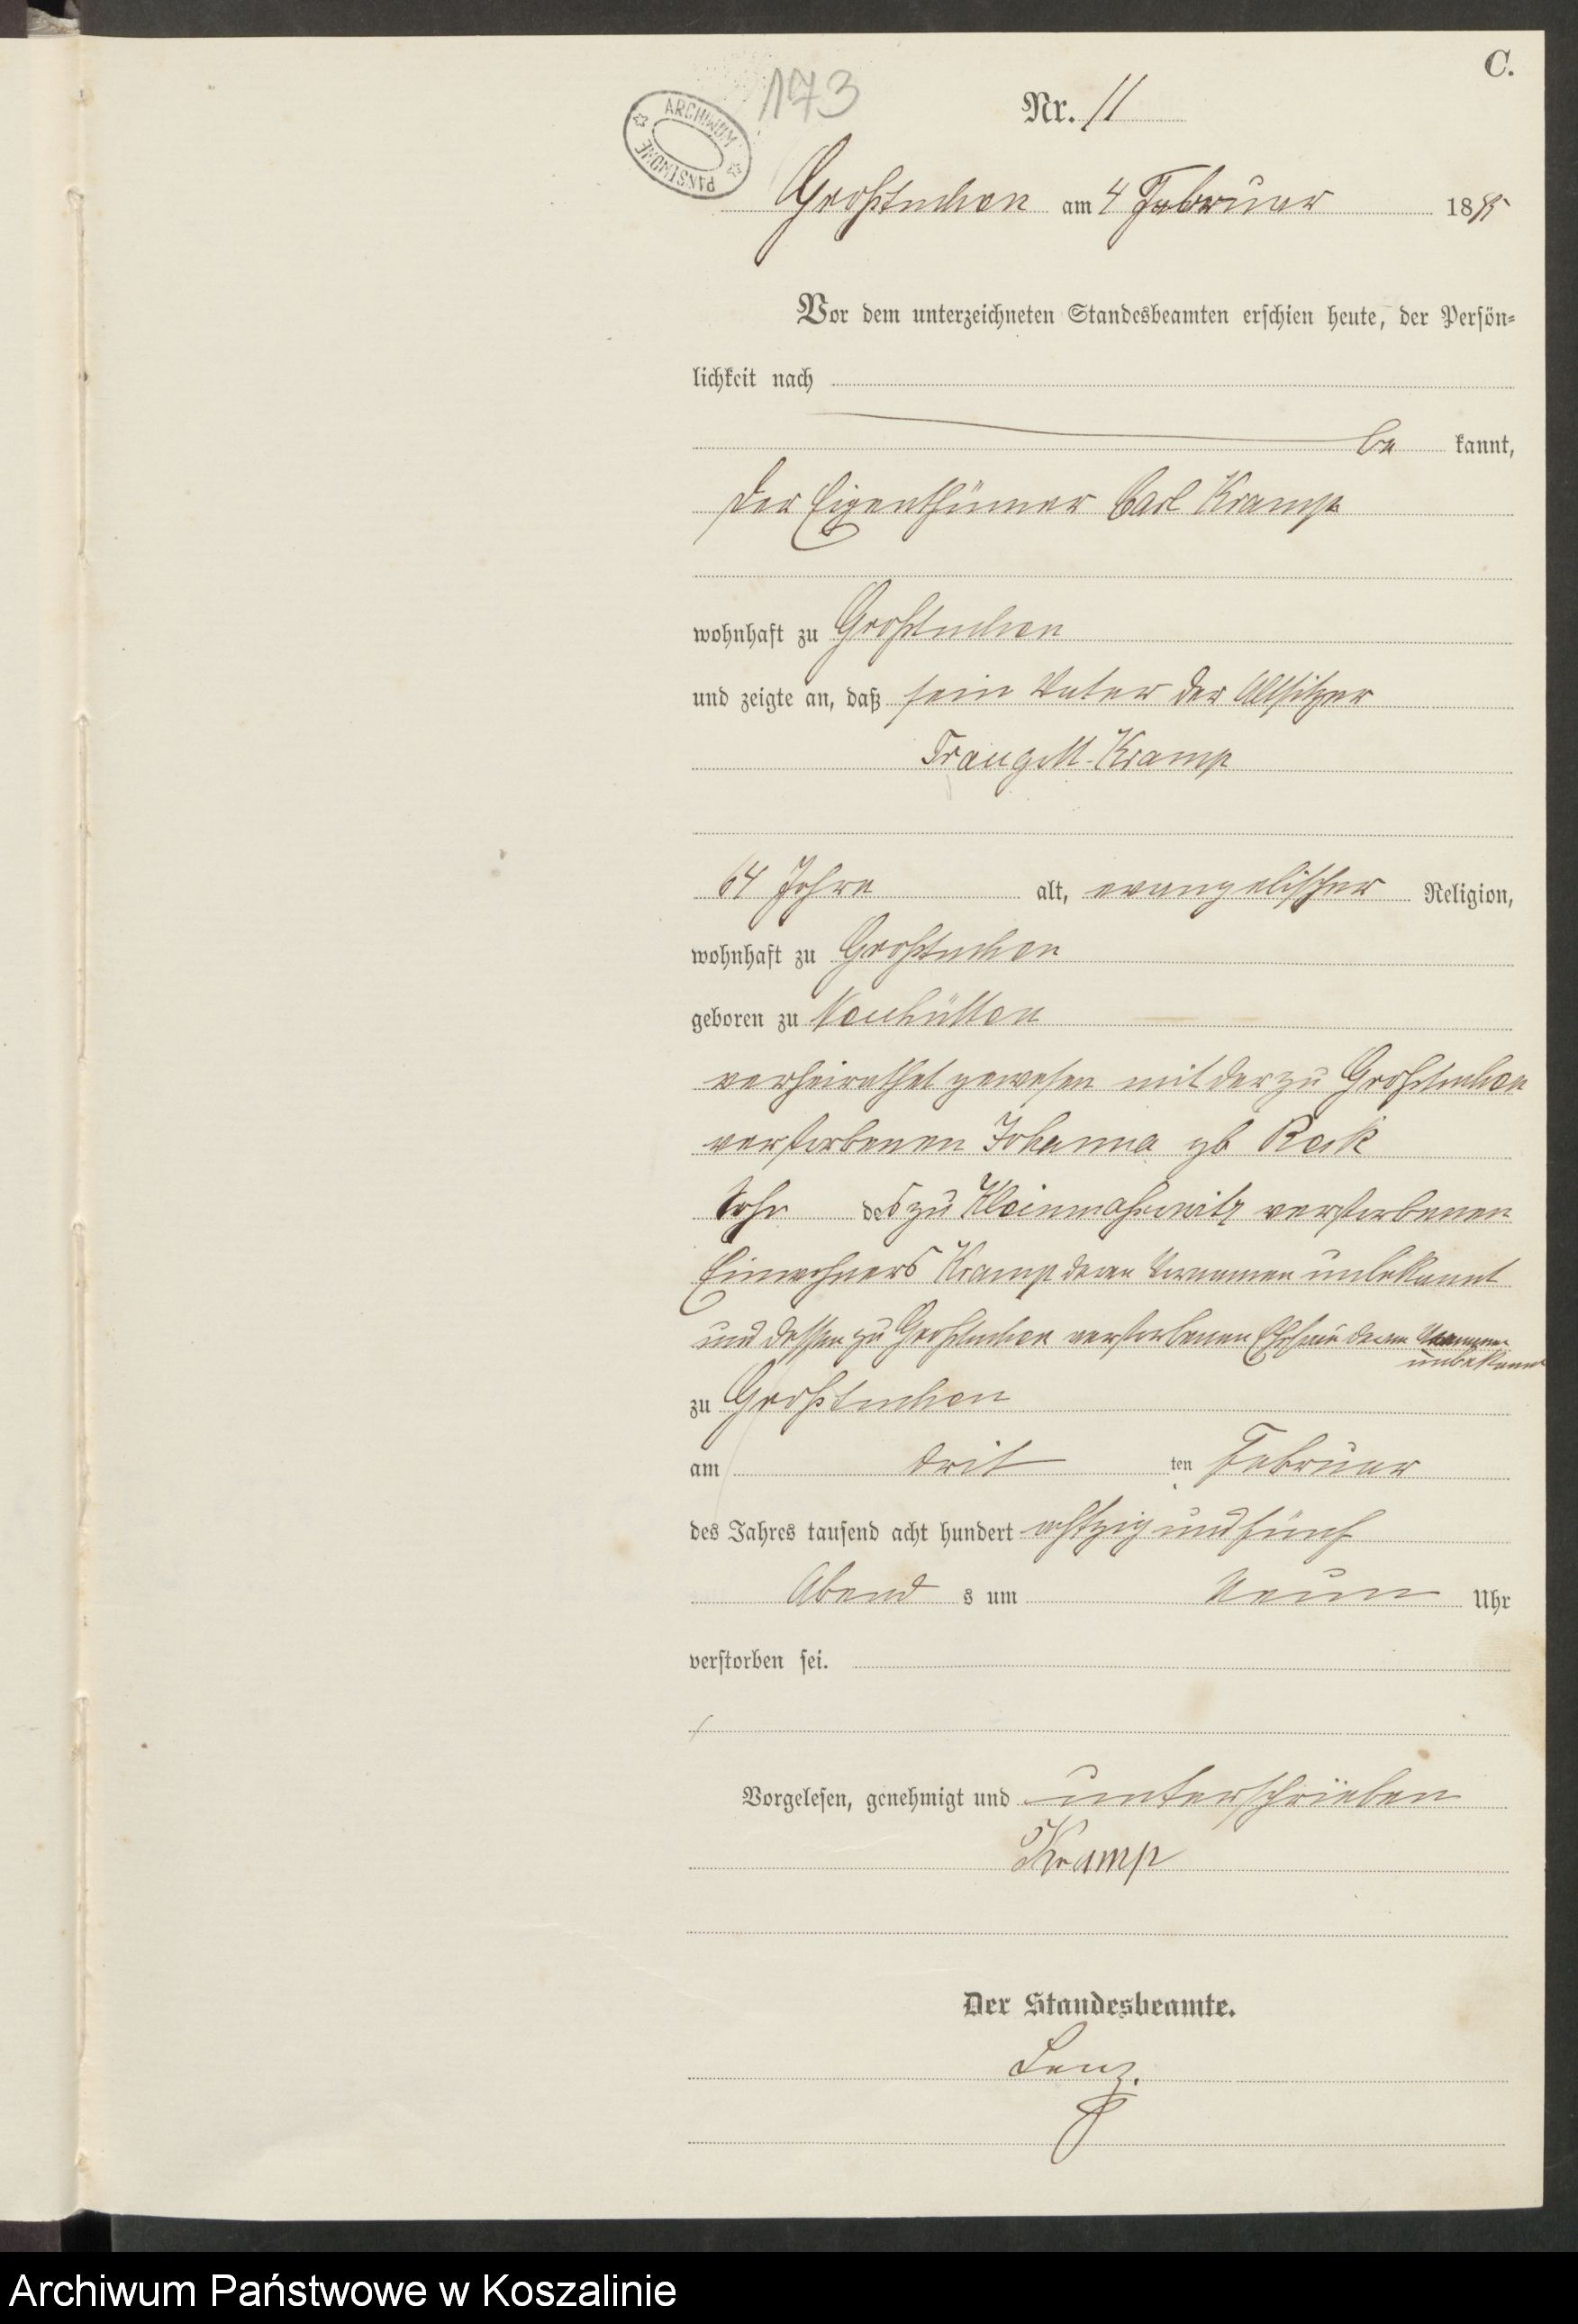 C.
173
ARCHIWUM PAŃSTWOWE
Nr. 11
Großtuchen am 4 Februar 1885
Vor dem unterzeichneten Standesbeamten erschien heute, der Persön-
lichkeit nach
be kannt,
der Eigenthümer Carl Kramp
wohnhaft zu Großtuchen
und zeigte an, daß sein Vater der Altsitzer
Traugott Kramp
64 Jahre alt, evangelischer Religion,
wohnhaft zu Großtuchen
geboren zu Neuhütten
verheirathet gewesen mit der zu Großtuchen
verstorbenen Johanna gb
Sohn des zu verstorbenen
Einwohners Kramp deren Vornamen unbekannt
und dessen zu Großtuchen verstorbenen Ehefrau deren Vornamen
unbekannt
zu Großtuchen
am drit ten Februar
des Jahres tausend acht hundert achtzig und fünf
Abend s um Neun Uhr
verstorben sei.
Vorgelesen, genehmigt und unterschrieben
Kramp
Der Standesbeamte.
Lenz.
Archiwum Państwowe w Koszalinie